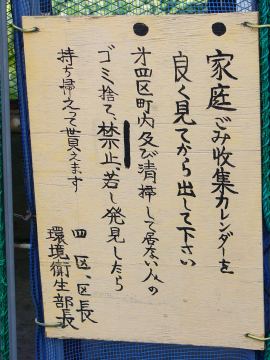 家庭ごみ收集カレンダーを
良く見てから出して下さい
才四区町内及び清掃して居ない人の
ゴミ捨て、禁止、若し発見したら
持ち帰えって貰えます
四区、区長
環境衛生部長